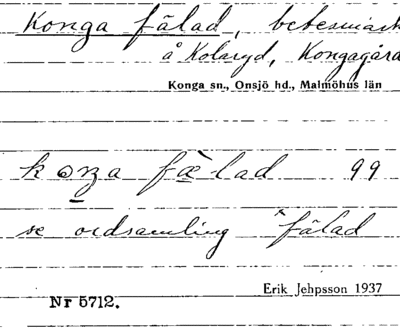 Konga fälad, betesmark
å Kolaryd, Kongagård
Konga sn., Onsjö hd., Malmöhus län
fälad 99
se ordsamling fälad
Erik Jehpsson 1937
Nr 5712.